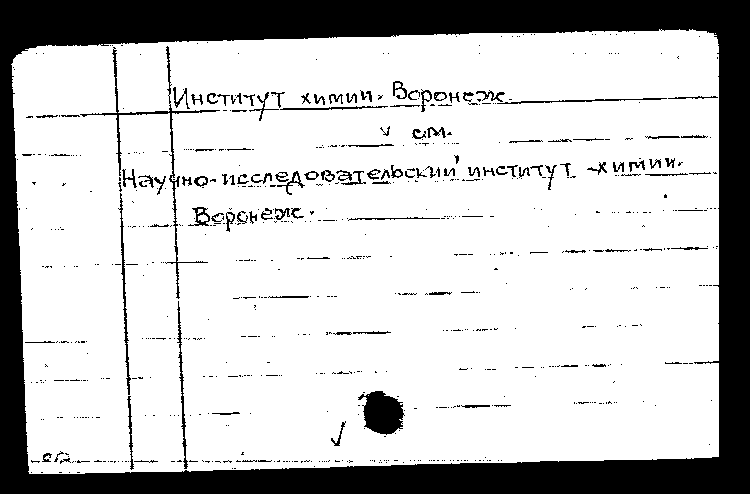 Институт химии. Воронеж.
см.
Научно-исследовательский институт химии.
Воронеж.